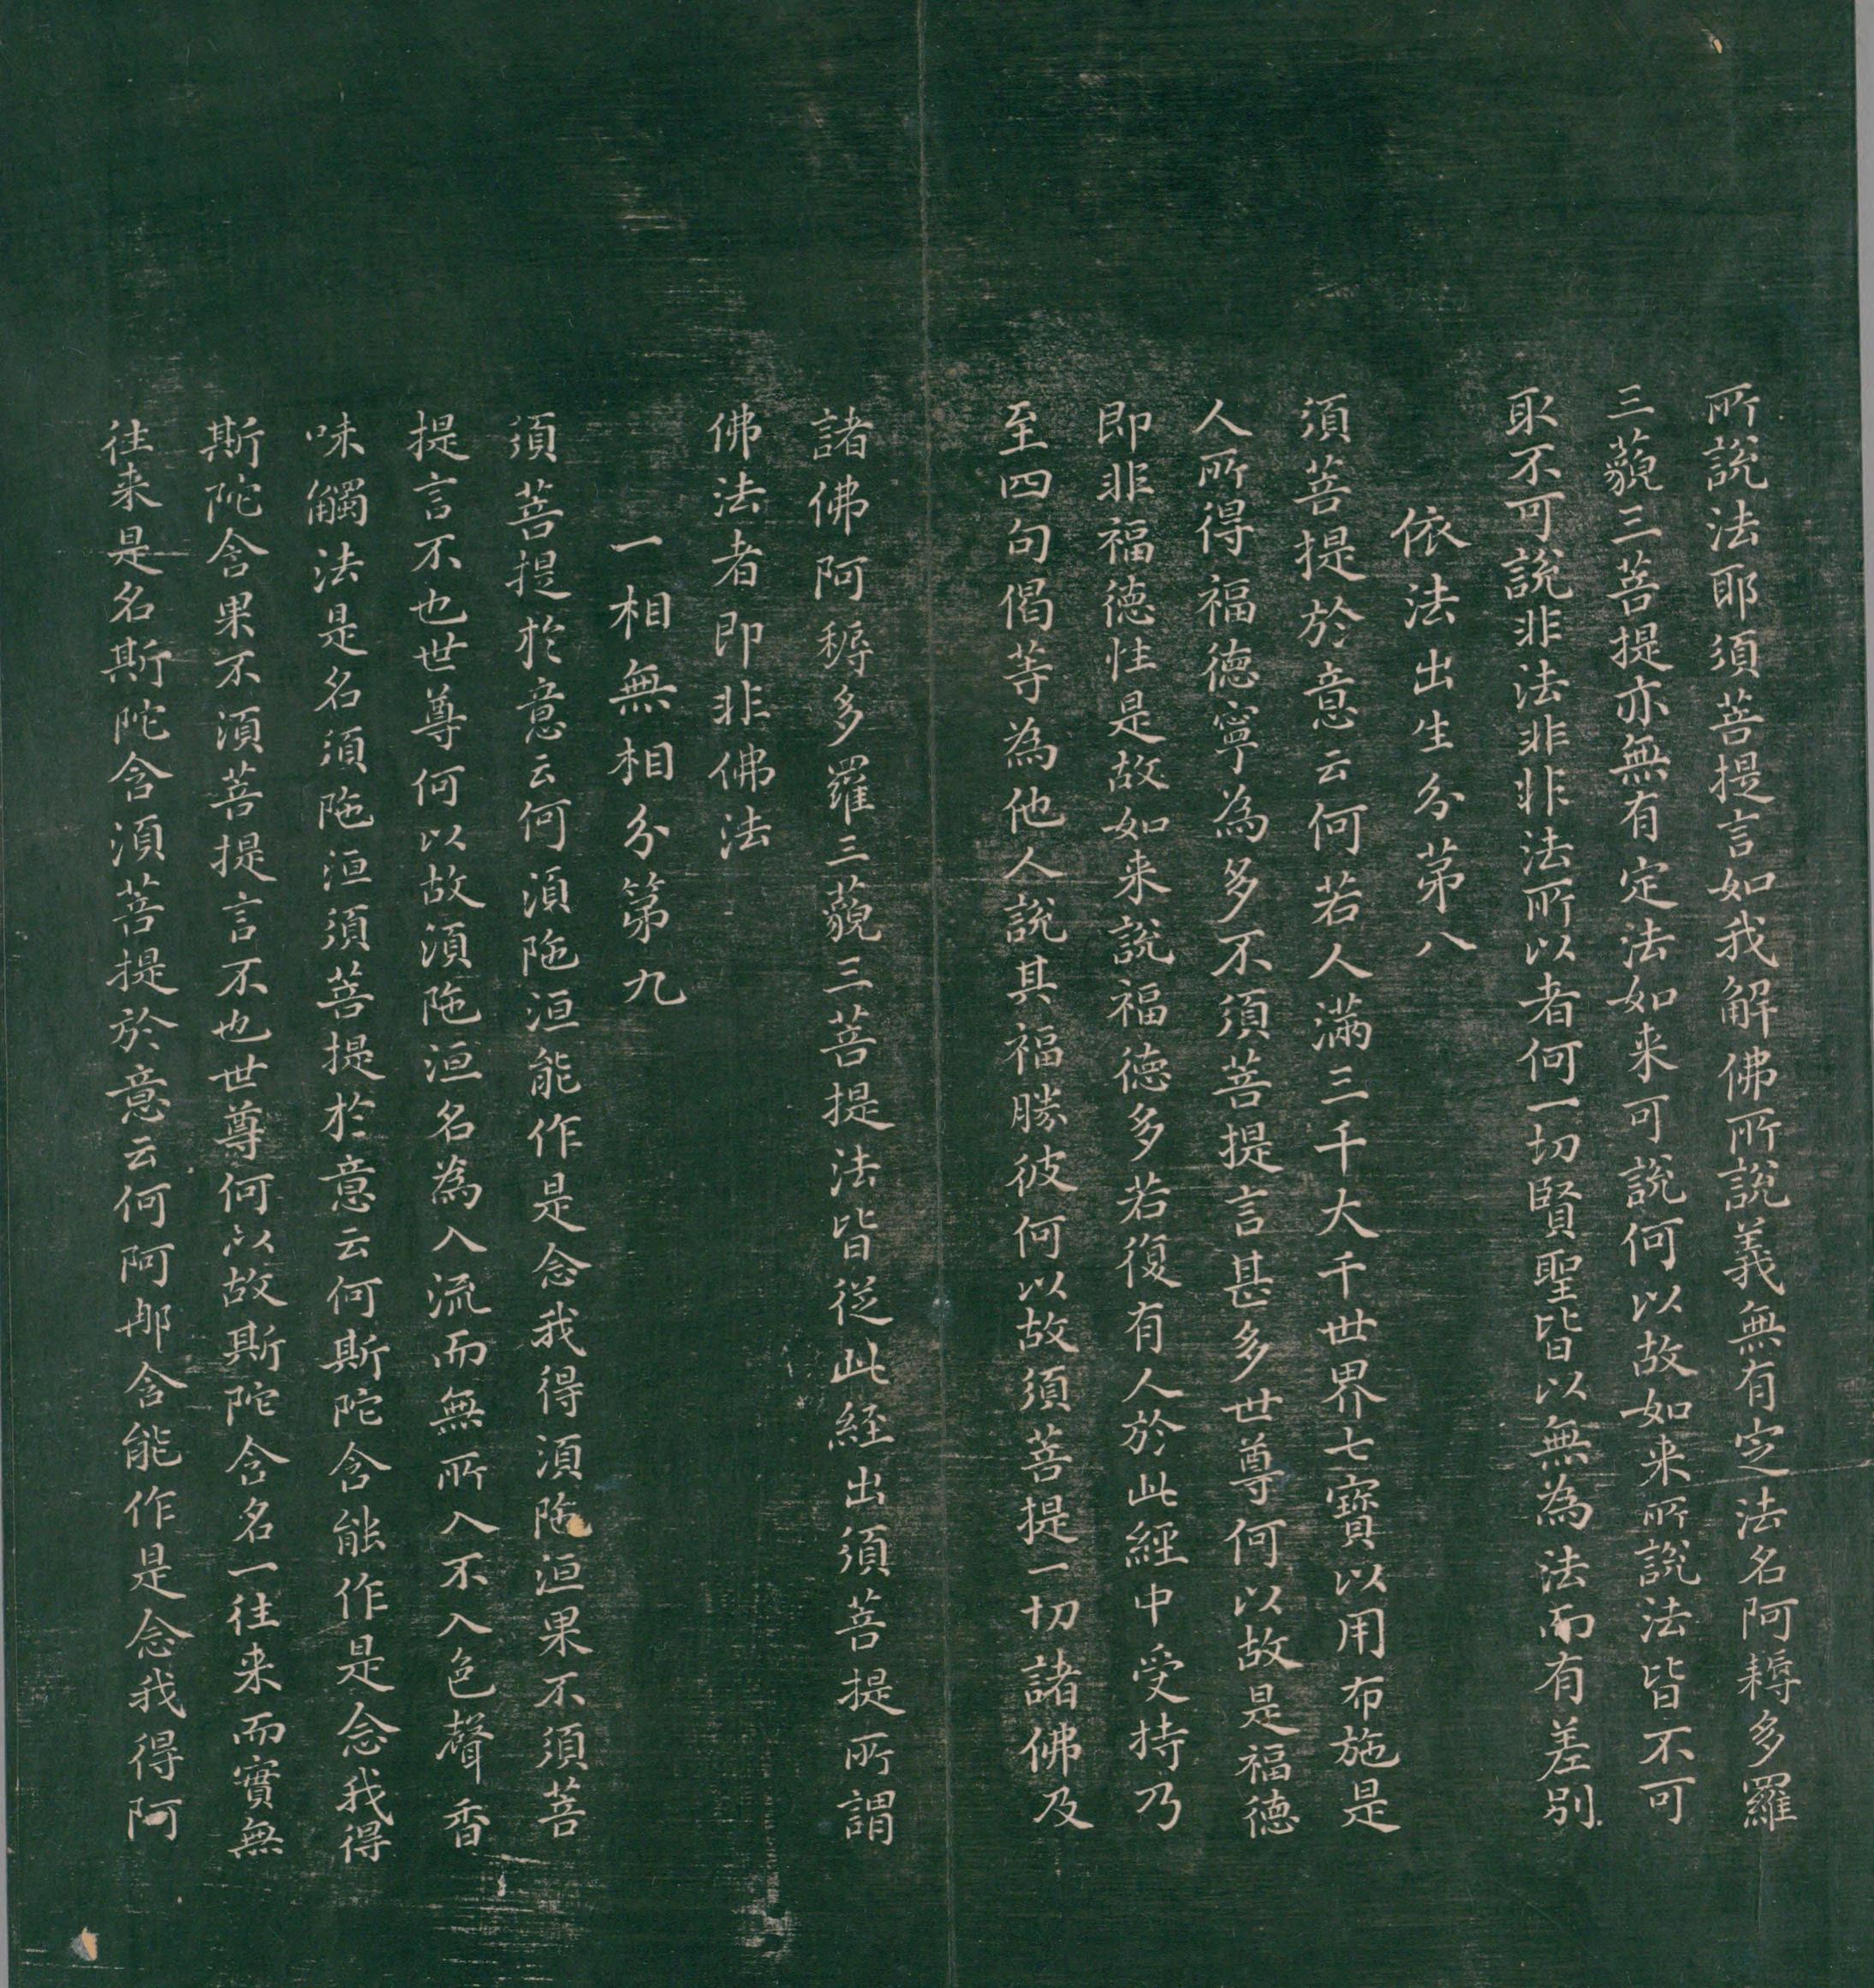 所說法耶須菩提言如我解佛所說義無有定法名阿耨多羅
三藐三菩提亦無有定法如来可說何以故如来所說法皆不可
取不可說非法非非法所以者何一切賢聖皆以無為法而有差別
依法出生分第八
須菩提於意云何若人滿三千大千世界七寶以用布施是
人所得福德寧為多不須菩提言甚多世尊何以故是福德
即非福德性是故如来說福德多若復有人於此經中受持乃
至四句偈等為他人說其福勝彼何以故須菩提一切諸佛及
諸佛阿耨多羅三藐三菩提法皆從此経出須菩提所謂
佛法者即非佛法
一相無相分第九
須菩提於意云何須陁洹能作是念我得須陁洹果不須菩
提言不也世尊何以故須陁洹名為入流而無所入不入色聲香
味觸法是名須陁洹須菩提於意云何斯陀含能作是念我得
斯陀含果不須菩提言不也世尊何以故斯陀含名一往来而實無
往来是名斯陀含須菩提於意云何阿那含能作是念我得阿